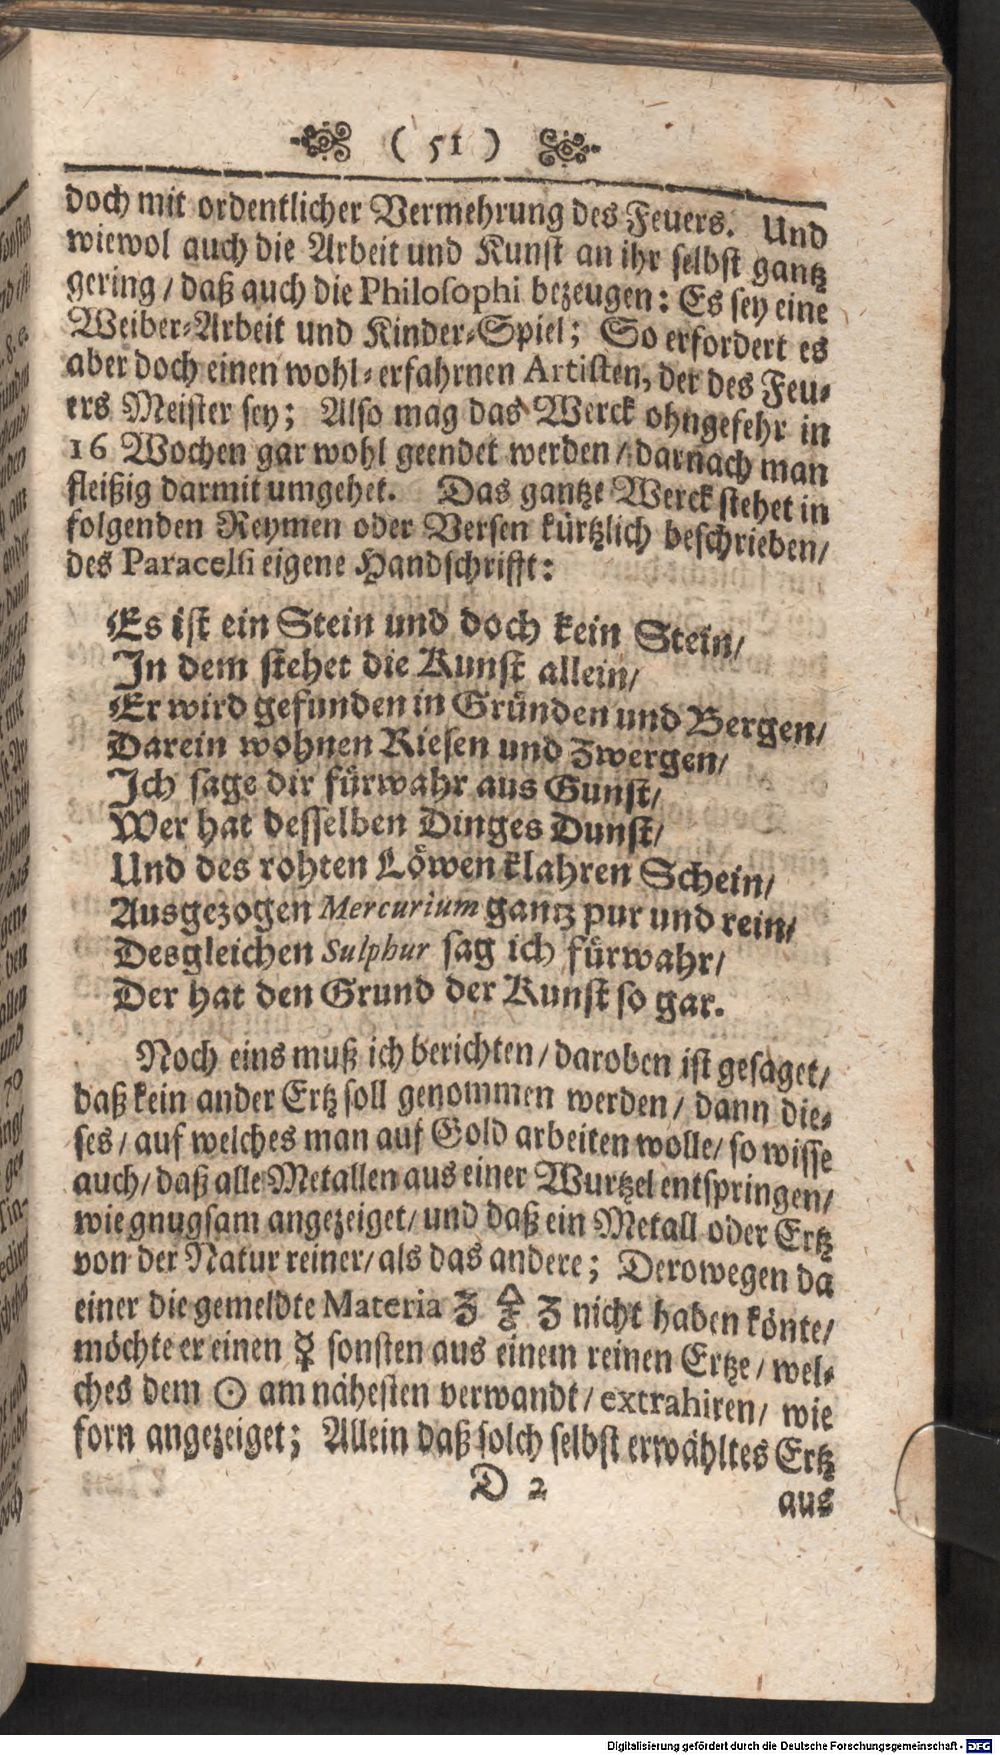 ( 51 )
doch mit ordentlicher Vermehrung des Feuers. Und
wiewol auch die Arbeit und Kunst an ihr selbst gantz
gering / daß auch die Philosophi bezeugen: Es sey eine
Weiber-Arbeit und Kinder-Spiel; So erfordert es
aber doch einen wohl-erfahrnen Artisten, der des Feu-
ers Meister sey; Also mag das Werck ohngefehr in
16 Wochen gar wohl geendet werden / darnach man
fleißig darmit umgehet. Das gantze Werck stehet in
folgenden Reymen oder Versen kürtzlich beschrieben /
des Paracelsi eigene Handschrifft:
Es ist ein Stein und doch kein Stein /
In dem stehet die Kunst allein /
Er wird gefunden in Gründen und Bergen /
Darein wohnen Riesen und Zwergen /
Ich sage dir fürwahr aus Gunst /
Wer hat desselben Dinges Dunst /
Und des rohten Löwen klahren Schein /
Ausgezogen Mercurium gantz pur und rein /
Desgleichen Sulphur sag ich fürwahr /
Der hat den Grund der Kunst so gar.
Noch eins muß ich berichten / daroben ist gesaget /
daß kein ander Ertz soll genommen werden / dann die-
ses / auf welches man auf Gold arbeiten wolle / so wisse
auch / daß alle Metallen aus einer Wurtzel entspringen /
wie gnugsam angezeiget / und daß ein Metall oder Ertz
von der Natur reiner / als das andere; Derowegen da
einer die gemeldte Materia nicht haben könte /
möchte er einen ☿ sonsten aus einem reinen Ertze / wel-
ches dem ☉ am nähesten verwandt / extrahiren / wie
forn angezeiget; Allein daß solch selbst erwähltes Ertz
D 2
aus
Digitalisierung gefördert durch die Deutsche Forschungsgemeinschaft - DFG